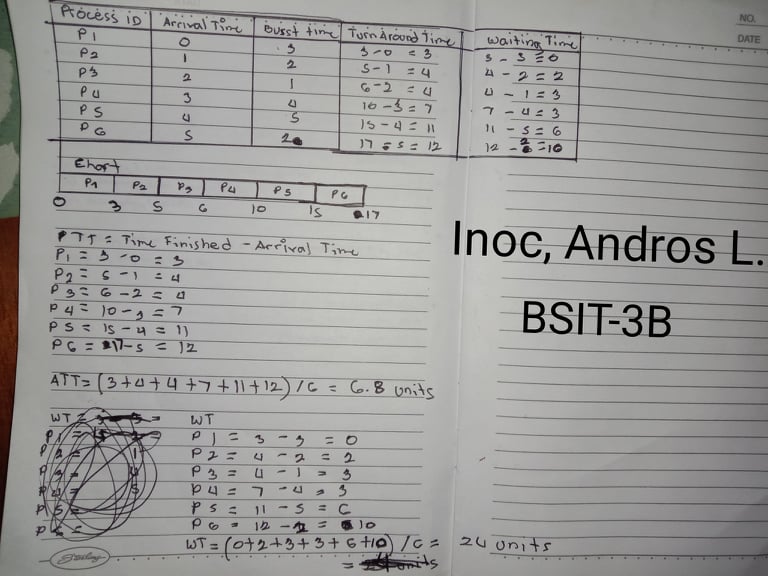 NO.
DATE
Process ID Arrival Time Busst time Turn Around Time Waiting Time
P1 0 3 3-0 = 3 3 - 3 = 0
P2 1 2 5-1 = 4 4 - 2 = 2
P3 2 1 6-2 = 4 4 - 1 = 3
P4 3 4 10-3 = 7 7 - 4 = 3
P5 4 5 15-4 = 11 11 - 5 = 6
P6 5 2 17-5 = 12 12 - 2 = 10
Chart
P1 P2 P3 P4 P5 P6
0 3 5 6 10 15 17
PTT = Time Finished - Arrival Time
P1 = 3 - 0 = 3
P2 = 5 - 1 = 4
P3 = 6 - 2 = 4
P4 = 10 - 3 = 7
P5 = 15 - 4 = 11
P6 = 17 - 5 = 12
ATT = (3+4+4+7+11+12) / 6 = 6.8 units
WT
P1 = 3 - 3 = 0
P2 = 4 - 2 = 2
P3 = 4 - 1 = 3
P4 = 7 - 4 = 3
P5 = 11 - 5 = 6
P6 = 12 - 2 = 10
WT = (0+2+3+3+6+10) / 6 = 24 units
Sterling
Inoc, Andros L.
BSIT-3B